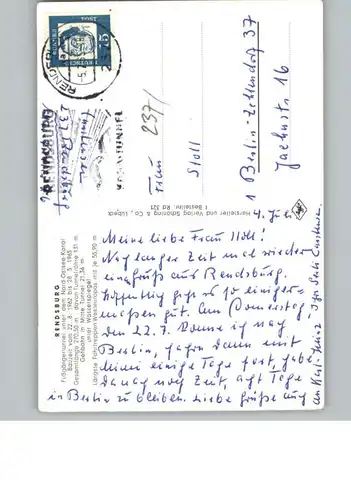 RENDSBURG
Fußgängertunnel unter dem Nord-Ostsee-Kanal
Bauzeit vom 27. 8. 1962 bis 28. 5. 1965
Gesamtlänge 170,50 m davon Tunnelröhre 131 m
Gehbahn in Mitte Tunnel 21,36 m
unter Wasserspiegel
Längste Fahrtreppen Westeuropas mit je 55,90 m
Hersteller und Verlag Schöning & Co., Lübeck
Bestellnr. Rd 321
RENDSBURG
237/
Frau
Stoll
1 Berlin-Zehlendorf 37
Jaehnstr. 16
4. Juli
Meine liebe Frau Stoll!
Nach langer Zeit mal wieder
ein Gruß aus Rendsburg.
Hoffentlich geht es so einiger-
maßen gut. Am Donnerstag,
den 22.7. komme ich nach
Berlin, fahre dann mit
Mimi einige Tage fort, habe
danach noch Zeit, acht Tage
in Berlin zu bleiben. Liebe Grüße auch
an Karl-Heinz Ihre